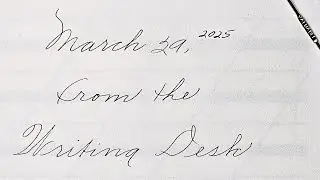 March 29, 2025
from the
Writing Desk